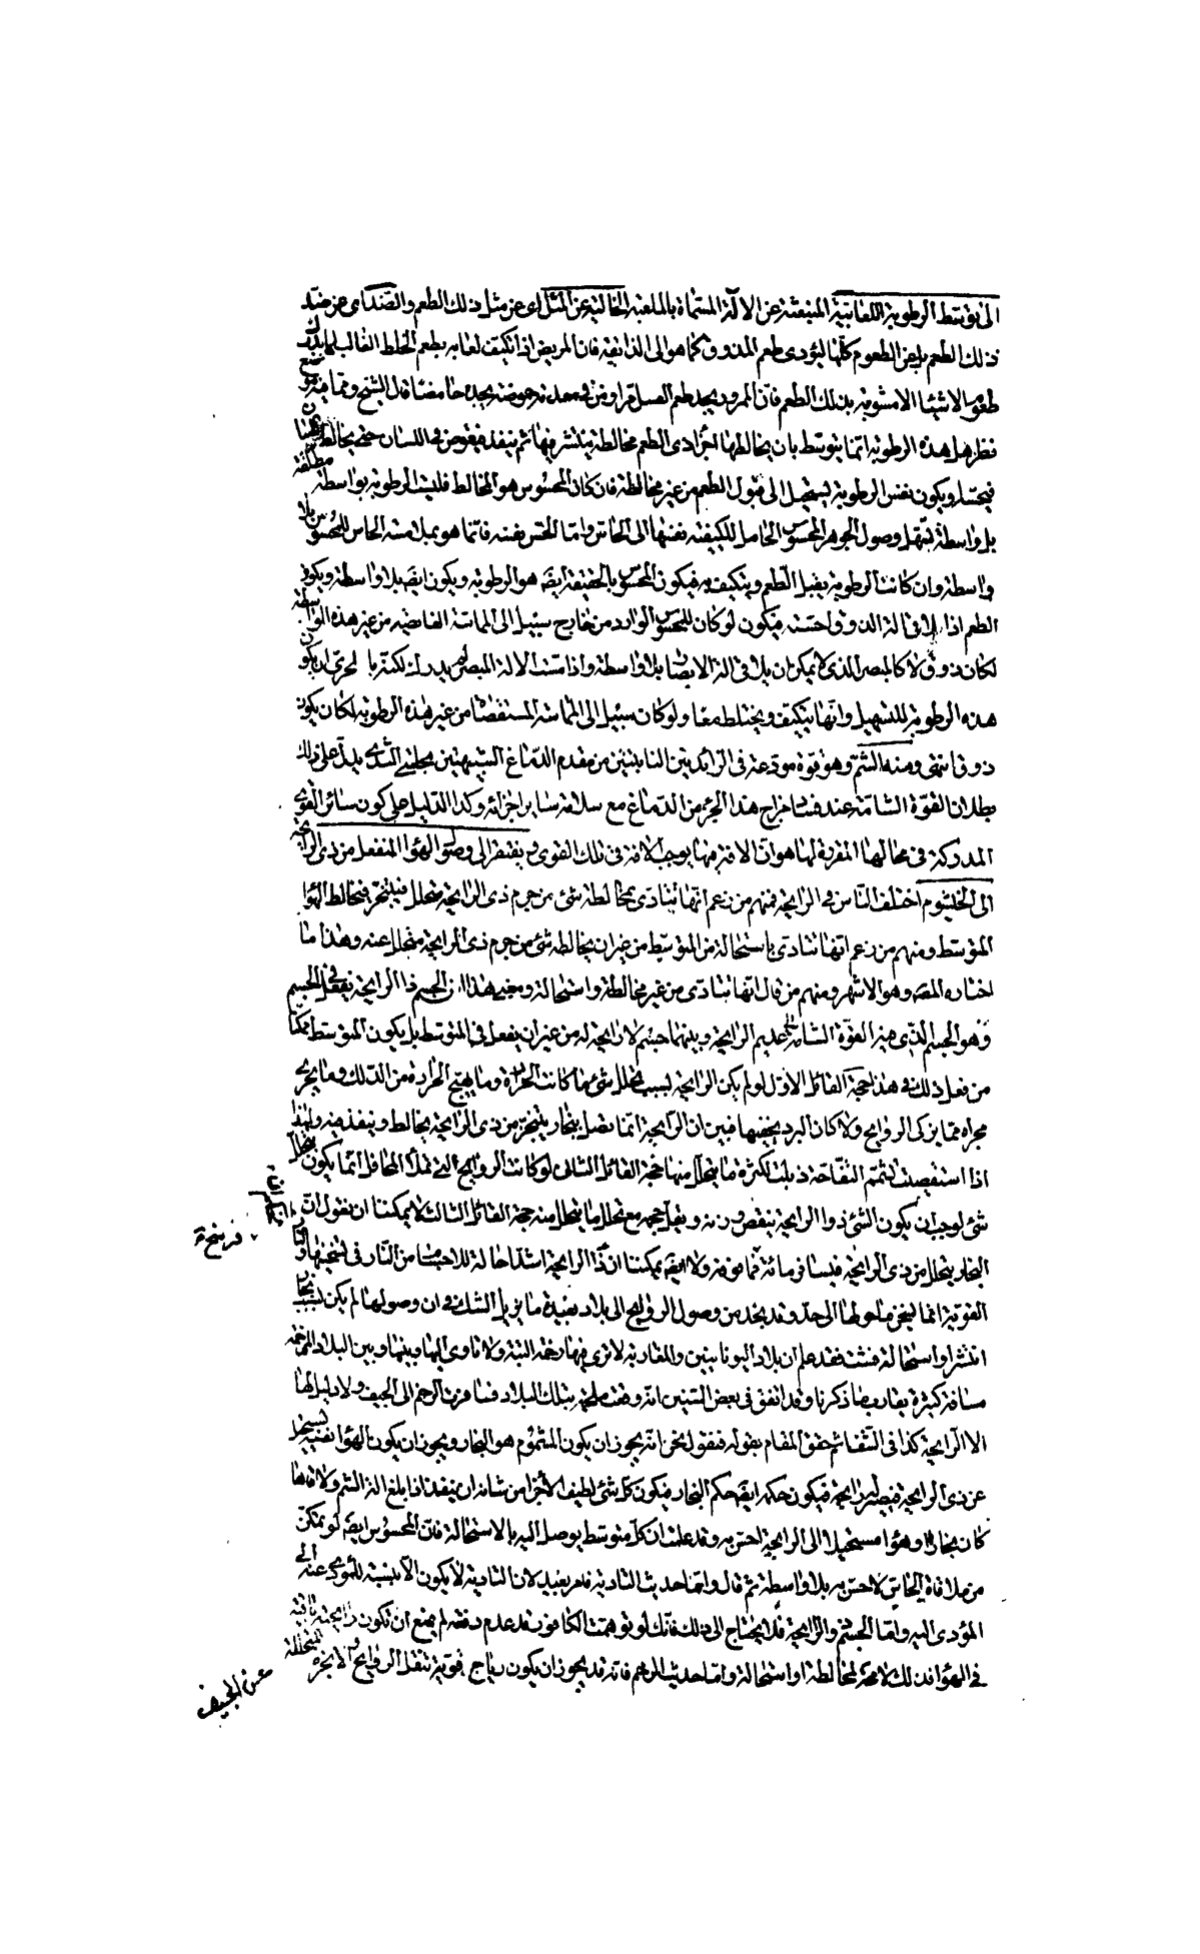 الى توسط الرطوبة اللعابية المنبعثة عن الآلة المسماة بالملعبة الخالية عن المثل اى عن مثل ذلك الطعم والضد اى عن ضد
ذلك الطعم بل عن الطعوم كلها ليؤدى طعم المذوق كما هو الى الذائقة فان المريض اذا تكيف لعابه بطعم الخلط الغالب لما يدرك
طعوم الاشياء الا مشوبة بذلك الطعم فان الممرور يجد طعم العسل مرا ومن فى معدته حموضة يجده حامضا قال الشيخ ومما فيه موضع
نظر هل هذه الرطوبة انما يتوسط بان يخالطها اجزاء ذى الطعم مخالطة ينتشر فيها ثم ينفذ فيغوص فى اللسان حتى يخالط اللسان
فيحسها ويكون نفس الرطوبة يستحيل الى قبول الطعم من غير مخالطة فان كان المحسوس هو المخالط فليست الرطوبة بواسطة مطلقة
بل واسطة يسهل وصول الجوهر المحسوس الحامل للكيفية نفسها الى الحاس واما الحس نفسه فانما هو بملامسة الحاس للمحسوس بلا
واسطة وان كانت الرطوبة يقبل الطعم ويتكيف به فيكون المحسوس بالحقيقة ايضا هو الرطوبة ويكون ايضا بلا واسطة ويكون
الطعم اذا لاقى آلة الذوق احسته فيكون لو كان للمحسوس الوارد من خارج سبيل الى المماسة الغائصة من غير هذه الواسطة
لكان ذوق لا كالمبصر الذى لا يمكن ان يلاقى آلة الابصار بلا واسطة واذا مست الآلة المبصر لم يدرك لكنه بالحرى ان يكون
هذه الرطوبة للتسهيل وانها يتكيف ويختلط معا ولو كان سبيل الى المماسة المستقصاة من غير هذه الرطوبة لكان يكون
ذوق انتهى ومنه الشم وهو قوة مودعة فى الزائدتين النابتتين من مقدم الدماغ الشبيهتين بحلمتى الثدى يدل على ذلك
بطلان القوة الشامة عند فساد مزاج هذا الجزء من الدماغ مع سلامة سائر اجزائه وكذا الدليل على كون سائر القوى
المدركة فى محالها المقررة لها هو ان الآفة فيها يوجب الآفة فى تلك القوى ويفتقر الى وصول الهواء المنفعل من ذى الرائحة
الى الخيشوم اختلف الناس فى الرائحة فمنهم من زعم انها تتادى بمخالطة شئ من جرم ذى الرائحة متحلل فيتبخر فيخالط الهواء
المتوسط ومنهم من زعم انها تتادى باستحالة من المتوسط من غير ان يخالطه شئ من جرم ذى الرائحة متحلل عنه وهذا ما
اختاره المصه وهو الاشهر ومنهم من قال انها تتادى من غير مخالطة واستحالة ومعنى هذا ان الجسم ذا الرائحة يفعل فى الجسم
وهو الجسم الذى فيه القوة الشامة عديم الرائحة وبينهما جسم لا رائحة له من غير ان يفعل فى المتوسط بل يكون المتوسط ممكنا
من فعل ذلك فى هذا حجة القائل الاول لو لم يكن الرائحة بسبب تحلل شئ ما كانت الحرارة وما يهيج الحرارة من الدلك وما يجرى
مجراه مما يزكى الروايح ولا كان البرد يخفيها فبين ان الرائحة انما يصل ببخار يتبخر من ذى الرائحة يخالط وينفذ فيه ولهذا
اذا استقصيت تشمم التفاحة ذبلت لكثرة ما يتحلل منها حجة القائل الثانى لو كانت الروايح التى تملأ المحافل انما يكون بتحلل
شئ لوجب ان يكون الشئ ذو الرايحة ينقص وزنه ويقل حجمه مع تحلل ما يتحلل منه حجة القائل الثالث لا يمكننا ان نقول ان
البخار يتحلل من ذى الرايحة فيسافر مائة فما فوقه ولا ايضا يمكننا ان ذا الرايحة اشد احالة للاجسام من النار فى تسخينها والنار
القوية انما تسخن ما حولها الى حد وقد نجد من وصول الروايح الى بلاد بعيدة ما يزيل الشك فى ان وصولها لم يكن بسبب بخار
انتشر او استحالة فشت فقد علم ان بلاد اليونانيين والمغاربة لا ترى فيها رخمة البتة ولا تاوى اليها وبينها وبين البلاد المرخمة
مسافة كثيرة يقارب ما ذكرنا وقد اتفق فى بعض السنين انه وقعت ملحمة بتلك البلاد فسافرت الرخم الى الجيف ولا دليل لها
الا الرائحة كذا فى الشفاء ثم حقق المقام بقوله فنقول نحن انه يجوز ان يكون المشموم هو البخار ويجوز ان يكون الهواء نفسه يستحيل
عن ذى الرايحة فيصير له رائحة فيكون حكمه ايضا حكم البخار فيكون كل شئ لطيف الاجزاء من شانه ان ينفذ اذا بلغ آلة الشم ولاقاها
كان بخارا او هواء مستحيلا الى الرايحة احس به وقد علمت ان كل متوسط يوصل اليه بالاستحالة فان المحسوس ايضا لو تمكن
من ملاقاة الحاس لاحس به بلا واسطة ثم قال واما حديث التادية فامر بعيد لان التادية لا يكون الا بنسبة للمؤدى عنه الى
المؤدى اليه واما الجسم ذو الرائحة فلا يحتاج الى ذلك فانك لو توهمت الكافور قد عدم دفعة لم يمنع ان تكون رائحته باقية
فى الهواء فذلك لا محالة لمخالطة او استحالة واما حديث الرخم فانه قد يجوز ان يكون رياح قوية تنقل الروايح والابخرة المتحللة
عن الجيف
فرسخ